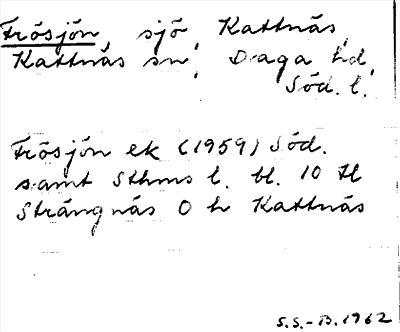 Frösjön, sjö, Kattnäs,
Kattnäs sn, Daga hd,
Söd. l.
Frösjön ek (1959) Söd.
samt Sthms l. bl. 10 tl
Strängnäs O h Kattnäs
S.S.-B. 1962